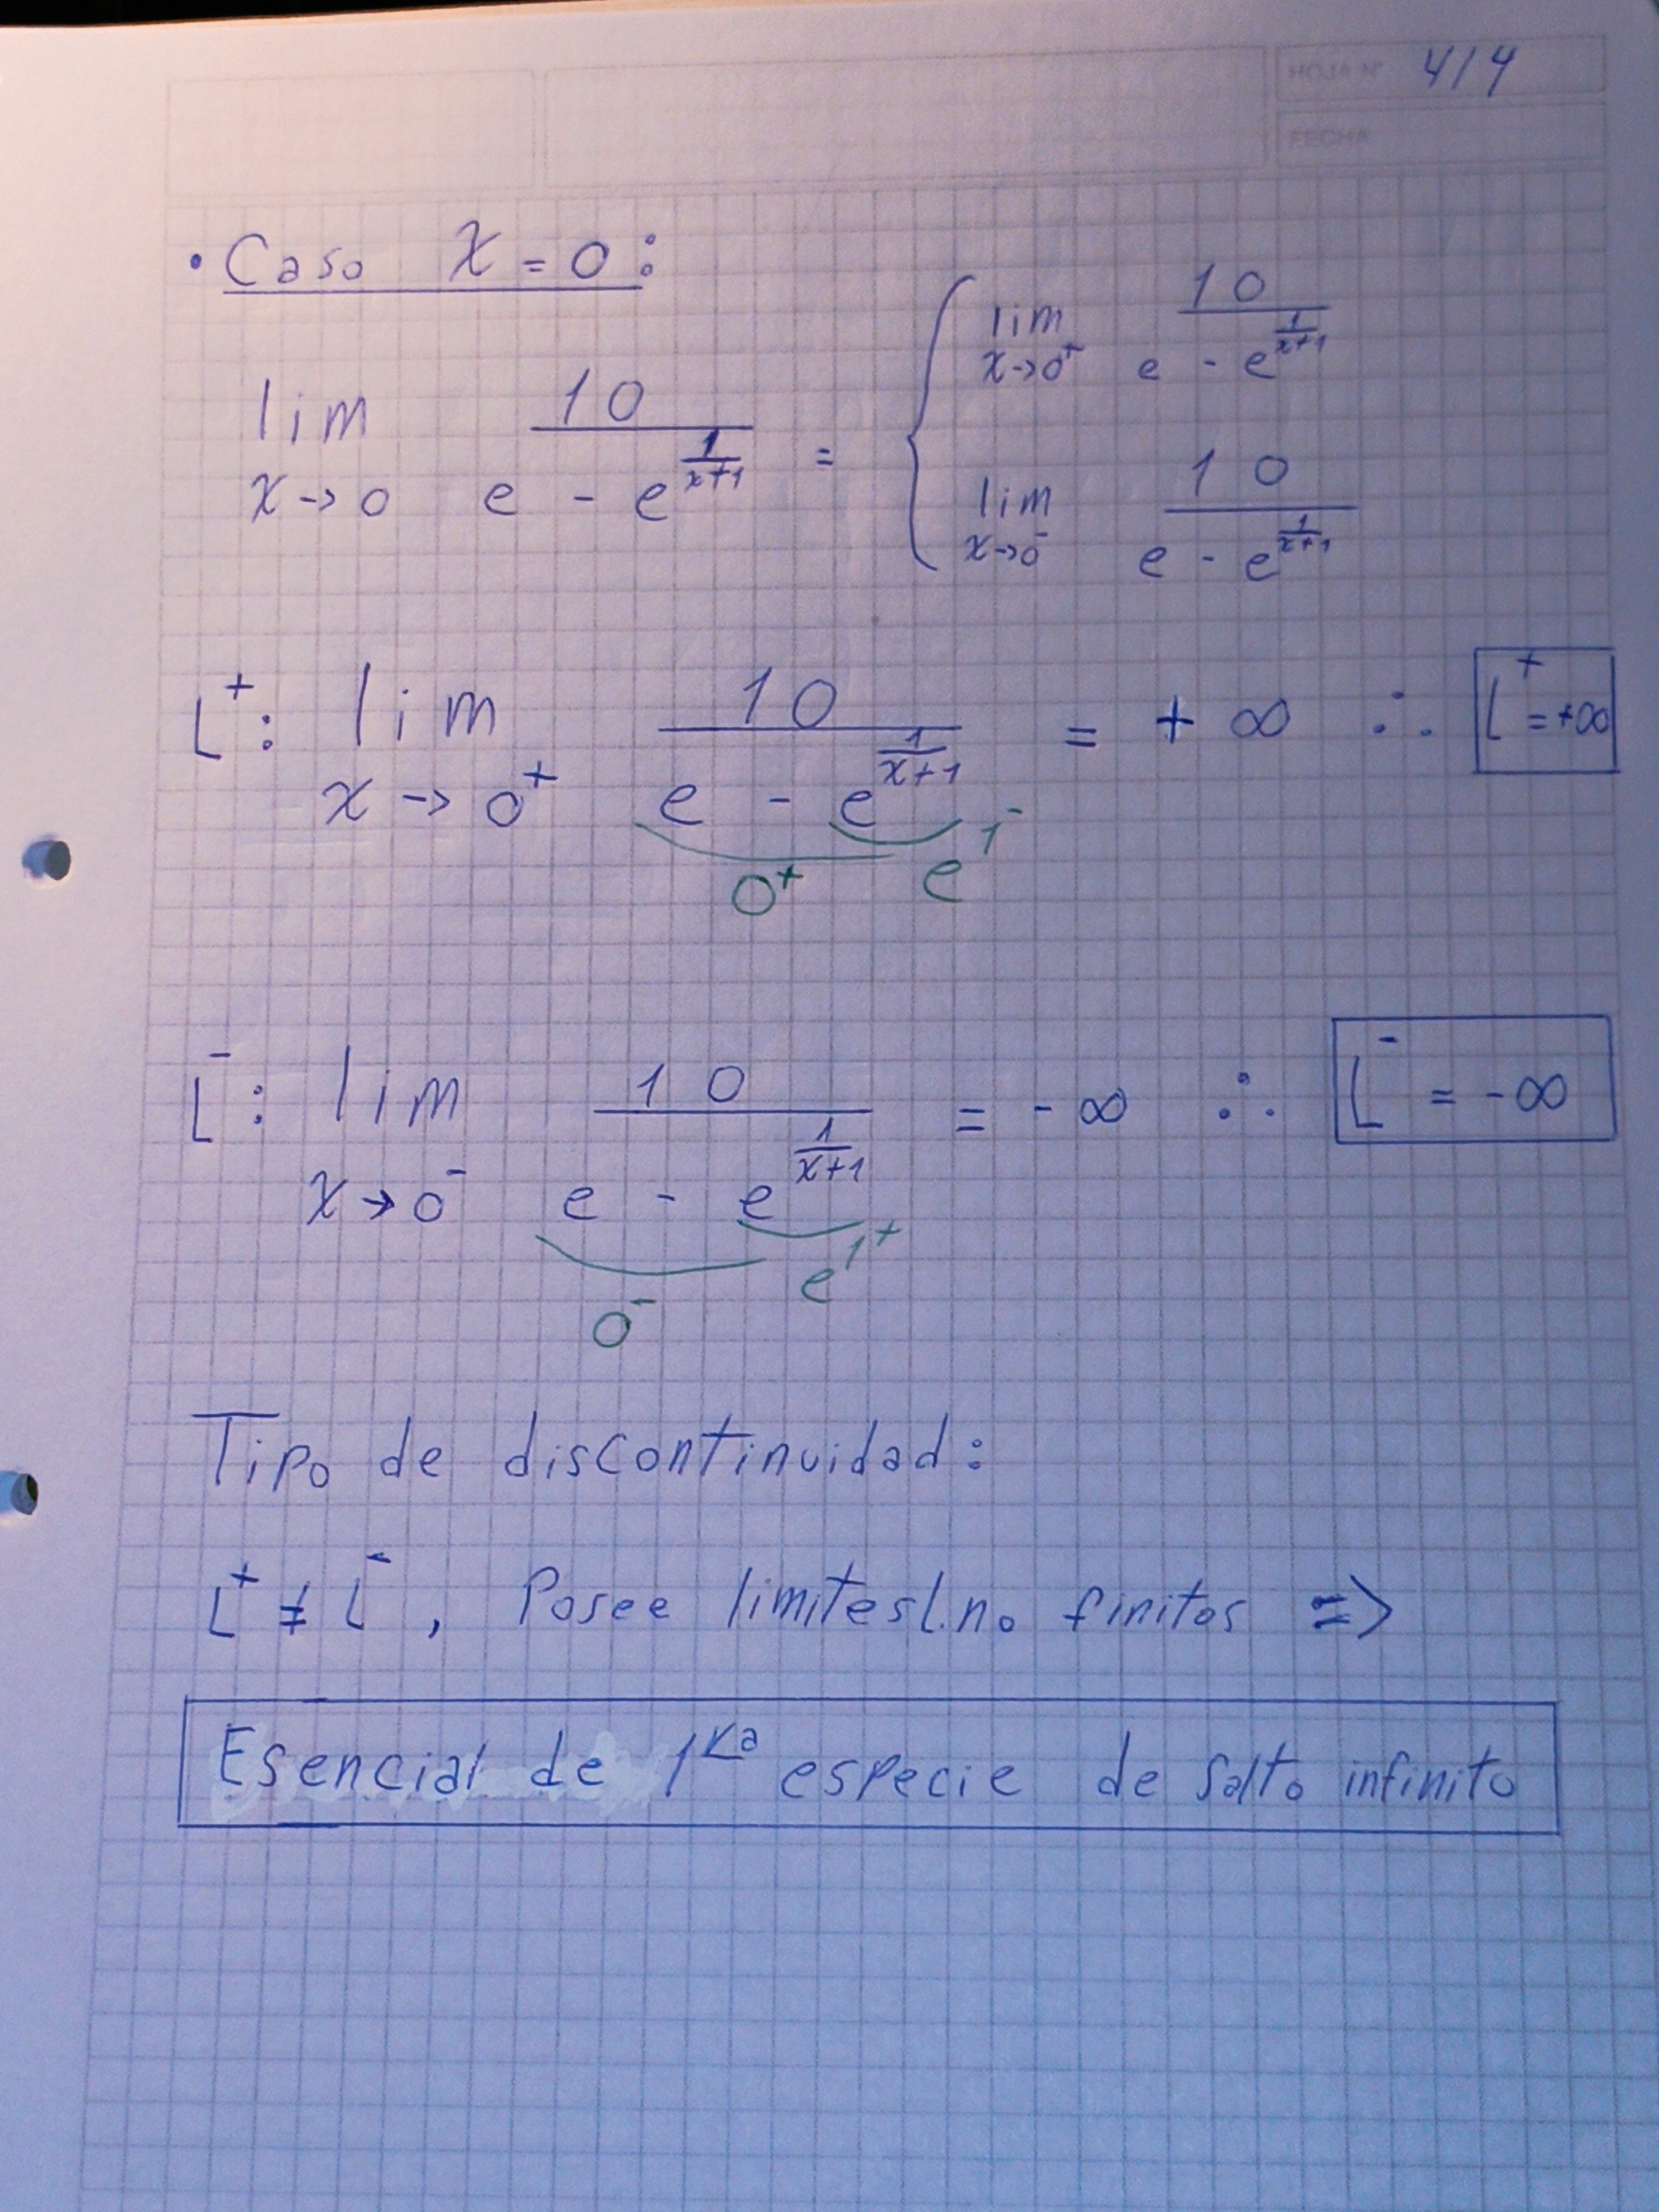 HOJA Nº 4/4
FECHA
• Caso x = 0:
lim x→0 10/(e - e^(1/(x+1))) = { lim x→0⁺ 10/(e - e^(1/(x+1)))
lim x→0⁻ 10/(e - e^(1/(x+1)))
L⁺: lim x→0⁺ 10/(e - e^(1/(x+1))) = + ∞ ∴ L⁺ = +∞
0⁺ e^1⁻
L⁻: lim x→0⁻ 10/(e - e^(1/(x+1))) = - ∞ ∴ L⁻ = -∞
0⁻ e^1⁺
Tipo de discontinuidad:
L⁺ ≠ L⁻, Posee limites l. no finitos =>
Esencial de 1ra especie de salto infinito